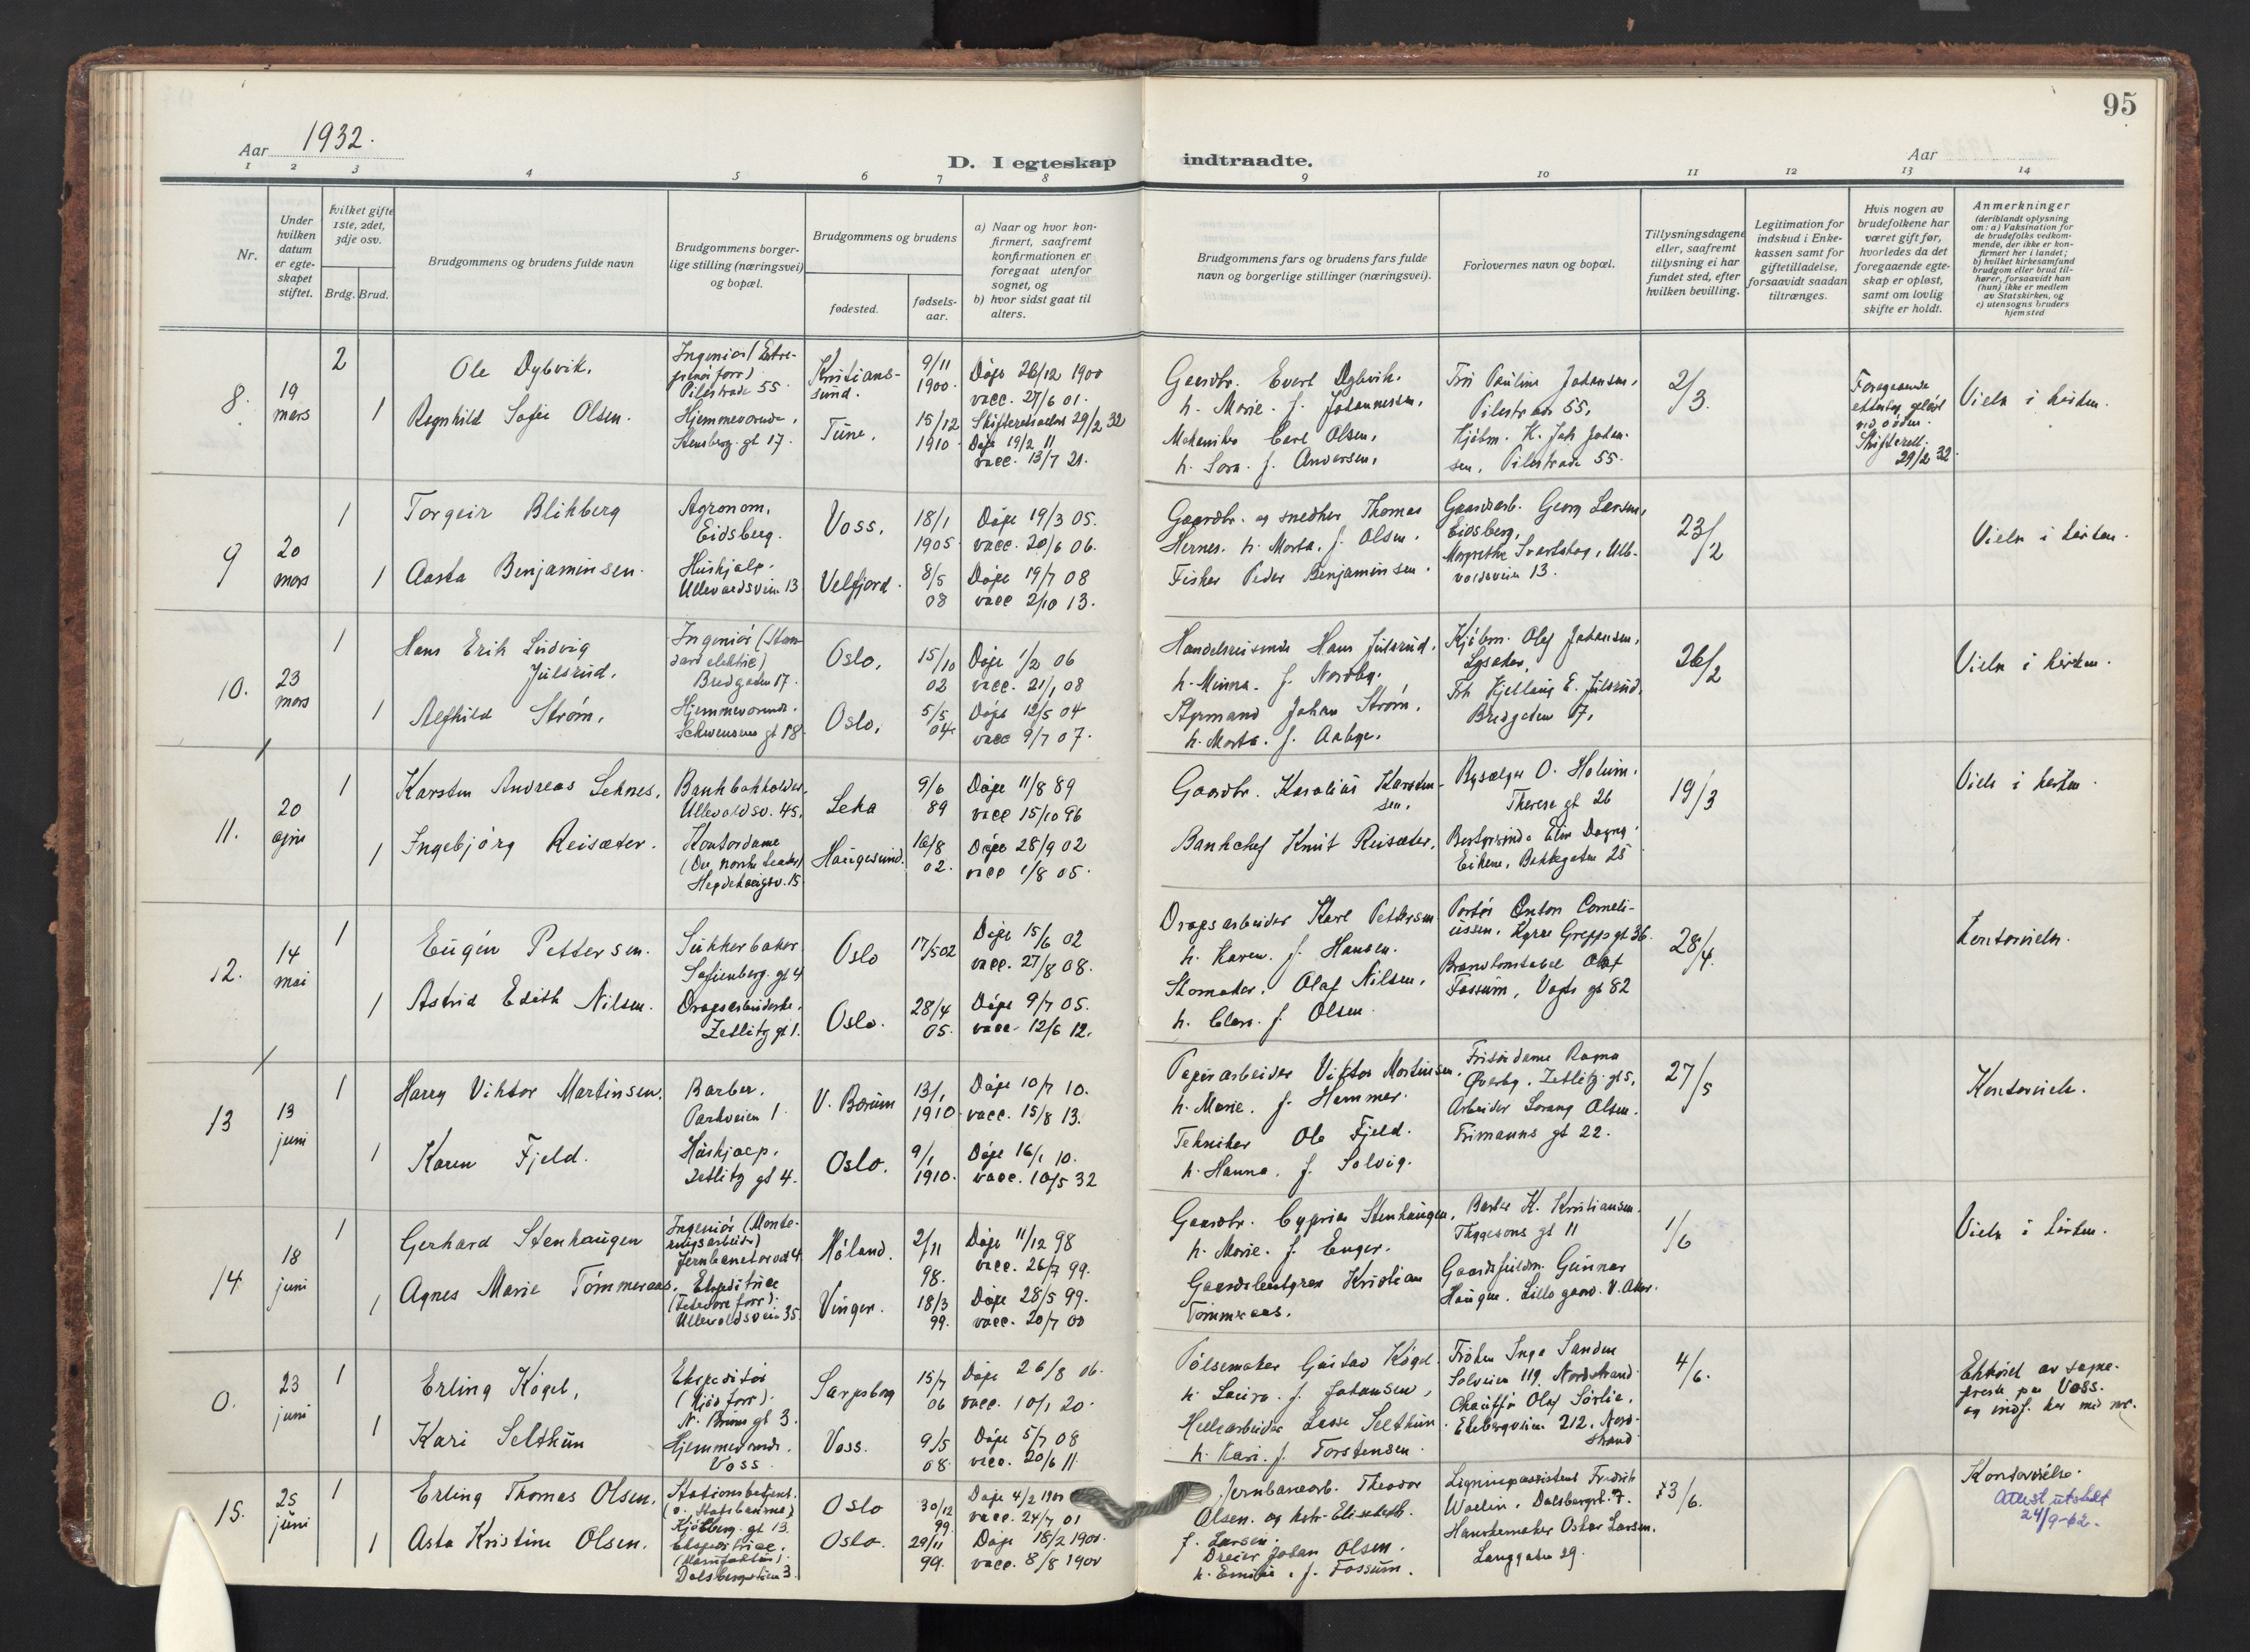 95
Aar 1932.
D. I egteskap indtraadte.
Aar
1 2 3 4 5 6 7 8 9 10 11 12 13 14
Nr.
Under hvilken datum er egte-skapet stiftet.
Hvilket gifte 1ste, 2det, 3dje osv.
Brdg. Brud.
Brudgommens og brudens fulde navn
Brudgommens borger-
lige stilling (næringsvei)
og bopæl.
Brudgommens og brudens
fødested.
fødsels-
aar.
a) Naar og hvor kon-
firmert, saafremt
konfirmationen er
foregaat utenfor
sognet, og
b) hvor sidst gaat til
alters.
Brudgommens fars og brudens fars fulde
navn og borgerlige stillinger (næringsvei).
Forlovernes navn og bopæl.
Tillysningsdagene
eller, saafremt
tillysning ei har
fundet sted, efter
hvilken bevilling.
Legitimation for
indskud i Enke-
kassen samt for
giftetilladelse,
forsaavidt saadan
tiltrænges.
Hvis nogen av
brudefolkene har
været gift før,
hvorledes da det
foregaaende egte-
skap er opløst,
samt om lovlig
skifte er holdt.
Anmerkninger
(deriblandt oplysning
om: a) Vaksination for
de brudefolks vedkom-
mende, der ikke er kon-
firmert her i landet;
b) hvilket kirkesamfund
brudgom eller brud til-
hører, forsaavidt han
(hun) ikke er medlem
av Statskirken, og
c) utensogns bruders
hjemsted
8. 19 mars
2 Ole Dybvik.
Pilestrade 55
Kristians-
sund.
9/11
1900.
Døpt 26/12 1900
vacc. 27/6 01.
Skifteretsattest 29/2 32
1 Ragnhild Sofie Olsen.
Hjemmeværende,
Stensberg. gt 17.
Tune.
15/12
1910
Døpt 19/2 11
vacc. 13/7 21.
Gaardbr. Evert Dybvik.
h. Marie. f. Johannessen,
Mekaniker Carl Olsen,
h. Lova. f. Andersen,
Frk Pauline Johansen,
Pilestrade 55,
Kjøbm. K. Joh Johan-
sen, Pilestrade 55.
2/3.
Foregaaende
ekteskap
Skifterett.
29/2 32.
Vielse i kirken.
9 20 mars
1 Torgeir Blikberg
Agronom,
Eidsberg.
Voss.
18/1
1905
Døpt 19/3 05.
vacc. 20/6 06.
1 Aasta Benjaminsen.
Huskjelp.
Ullevaalsveien 13
Velfjord.
8/5
08
Døpt 19/7 08
vacc 2/10 13.
Gaardbr. og snedker Thomas
Hernes. h. Marta. f. Olsen.
Fisker Peder Benjaminsen.
Gaardsarb. Georg Larsen,
Eidsberg,
Margrethe Svartskog, Ulle-
vaalsveien 13.
23/2
Vielse i kirken.
10. 23 mars
1 Hans Erik Ludvig
Julsrud.
Ingeniør (Stan-
dard elektric)
Bredgaten 17.
Oslo,
15/10
02
Døpt 1/2 06
vacc. 21/1 08
1 Alfhild Strøm,
Hjemmeværende.
Schwensens gt 18.
Oslo,
5/5
04
Døpt 12/5 04
vacc 9/7 07.
Handelsreisende Hans Julsrud.
h. Minna. f. Nordby.
Styrmand Johan Strøm,
h. Marta. f. Aabye.
Kjøbm. Olaf Johansen,
Lysaker,
Frk Kjellaug E. Julsrud.
Bredgaten 17,
26/2
Vielse i kirken.
11. 20 april
1 Karsten Andreas Leknes.
Bankbokholder.
Ullevoldsv. 45.
Leka
9/6
89
Døpt 11/8 89
vacc 15/10 96
1 Ingebjørg Reisæter.
Kontordame
Hegdehaugsv. 15.
Haugesund.
16/8
02.
Døpt 28/9 02
vacc 1/8 05.
Gaardbr. Karolius Karsten-
sen.
Bankchef Knut Reisæter.
O. Holum.
Therese gt 26
Bestyrerinde Elin Dagny
Eikene, Bakkegaten 25
19/3
Vielse i kirken.
12. 14 mai
1 Eugén Pettersen.
Sukkerbaker
Sofienberg. gt 4
Oslo
17/5 02
Døpt 15/6 02
vacc. 27/8 08.
1 Astrid Edith Nilsen.
Zetlitz gt 1.
Oslo.
28/4
05.
Døpt 9/7 05.
vacc. 12/6 12.
Karl Pettersen
h. Karen. f. Hansen.
Skomaker. Olaf Nilsen,
h. Clara. f. Olsen.
Portør Anton Corneli-
ussen. Kyrre Grepps gt 36.
Brandkonstabel Olaf
Fossum, Vogts gt 82
28/4.
Kontorvielse.
13 13 juni
1 Harry Viktor Martinsen.
Barber.
Parkveien 1
V. Bærum
13/1
1910
Døpt 10/7 10.
vacc. 15/8 13.
1 Karen Fjeld.
Huskjælp.
Zetlitz gt 4.
Oslo.
9/1
1910.
Døpt 16/1 10.
vacc. 10/5 32
Papirarbeider Viktor Martinsen.
h. Marie. f. Hammer.
Tekniker Ole Fjeld.
h. Hanna. f. Solvig.
Frisørdame Ragna
Øverby. Zetlitz. gt 5,
Arbeider Lorang Olsen.
Frimanns gt 22.
27/5
Kontorvielse.
14 18 juni
1 Gerhard Stenhaugen
Ingeniør (Monte-
ringsarbeide)
Jernbanetorvet 4.
Høland.
2/11
98.
Døpt 11/12 98
vacc. 26/7 99.
1 Agnes Marie Tømmeraas.
Ekspeditrice
Ullevoldsveien 35.
Vinger.
18/3
99.
Døpt 28/5 99.
vacc. 20/7 00
Gaardbr. Cyprian Stenhaugen,
h. Marie. f. Enger.
Gaardsbestyrer Kristian
Tømmeraas.
Barber K. Kristiansen.
Thygesons gt 11
Gaardsfuldm. Gunnar
Haugen. Lille gaard. V. Aker.
1/6
Vielse i kirken.
0. 23 juni
1 Erling Kogel,
Ekspeditør
(Kjødforr).
N. Bruns gt 3.
Sarpsborg
15/7
06
Døpt 26/8 06.
vacc. 10/1 20.
1 Kari Selthun
Hjemmeværende.
Voss.
Voss.
9/5
08
Døpt 5/7 08
vacc. 20/6 11.
Pølsemaker Gustav Kogel.
h. Laura. f. Johansen,
Hellearbeider Lasse Selthun.
h. Kari. f. Torstensen.
Frøken Inga Sanden
Solveien 119. Nordstrand.
Chauffør Olaf Sørlie,
Ekebergveien 212. Nord-
strand
4/6.
Ektviet av sogne-
prest på Voss.
og indf. her med nr.
15. 25 juni
1 Erling Thomas Olsen.
Stationsbetjent.
(v. Statsbanerne)
Kjølberg. gt 13.
Oslo
30/12
99.
Døpt 4/2 1900
vacc. 24/7 01
1 Asta Kristine Olsen.
Ekspeditrice.
(Manufaktur)
Dalsbergstien 3.
Oslo.
29/11
99.
Døpt 18/2 1900.
vacc. 8/8 1900
Jernbanearb. Theodor
Olsen. og hstr. Elisabeth.
f. Larsen.
Dreier Johan Olsen.
h. Emilie. f. Fossum.
Ligningsassistent Fredrik
Waelin. Dalsbergst. 7.
Hanskemaker Oskar Larsen.
Langgaten 29.
13/6.
Kontorvielse.
Attest utstedt
24/9-62.